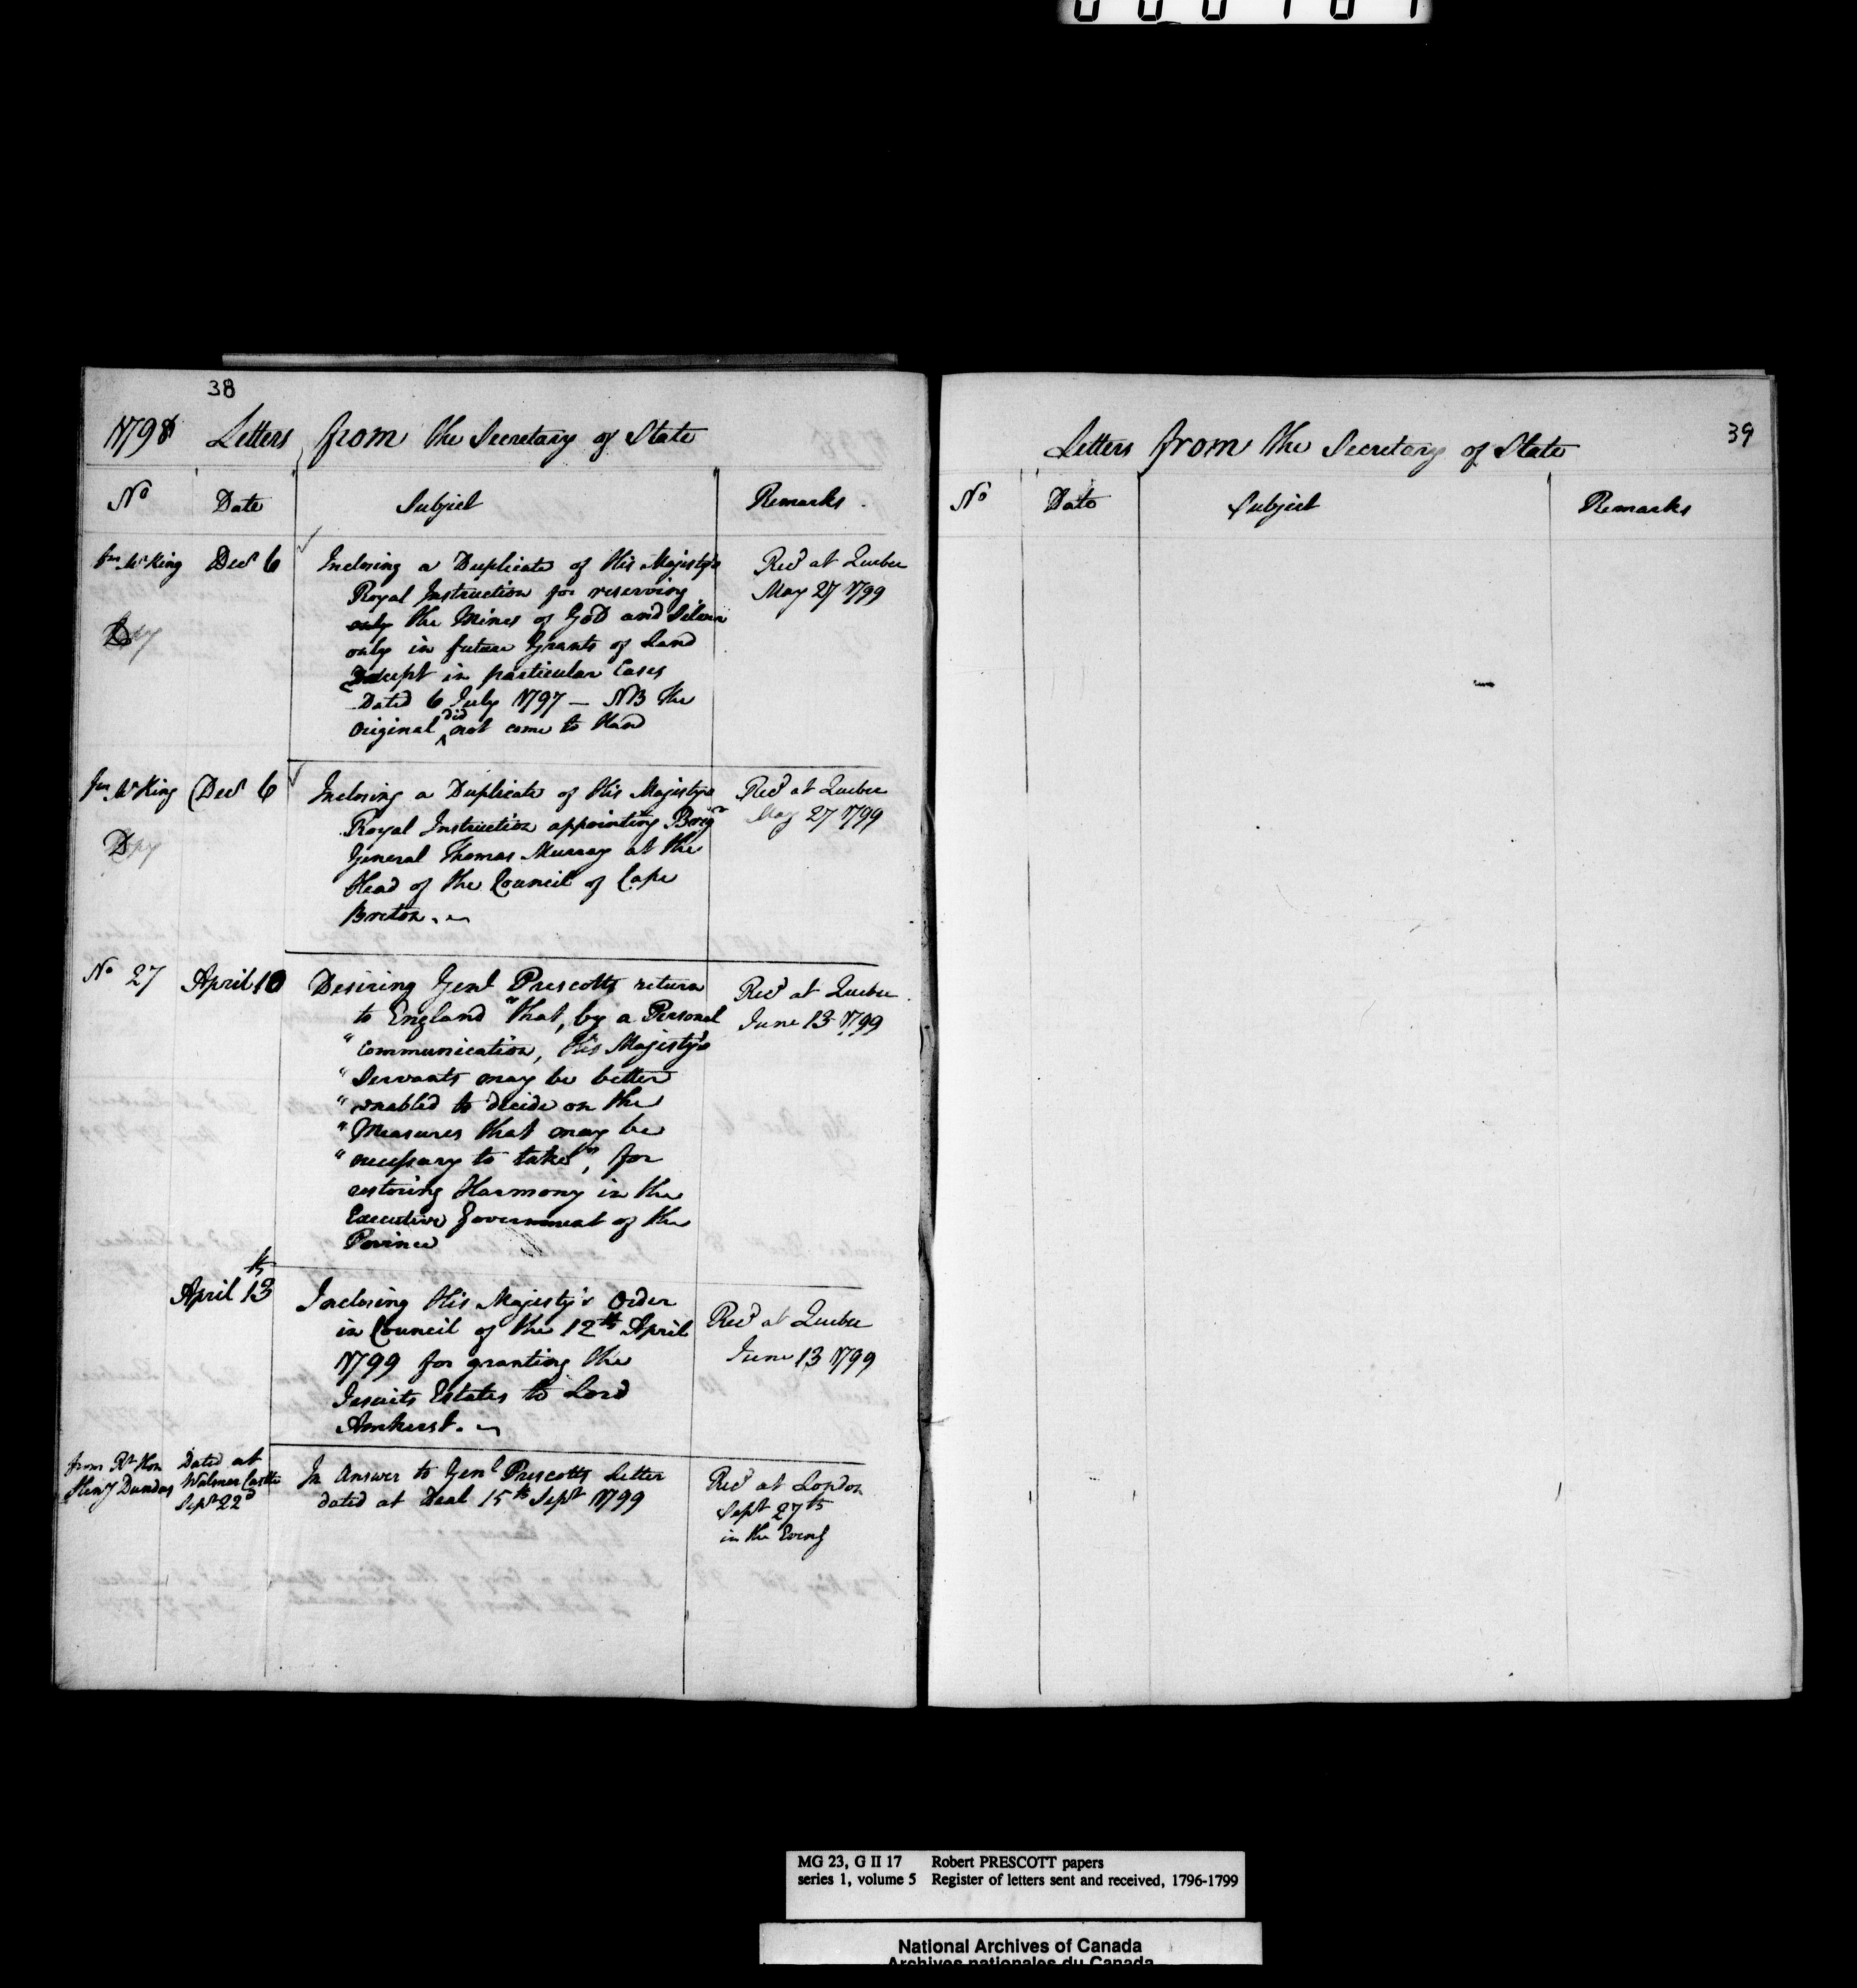 38
1798 Letters from the Secretary of State
No Date Subject Remarks
fm Mr King Decr 6 Inclosing a Duplicate of His Majesty's Recd at Quebec
Royal Instruction for reserving May 27 1799
only the Mines of Gold and Silver
only in future Grants of Land
Except in particular Cases
Dated 6 July 1797 — NB The
Original did not come to Hand
fm Mr King Decr 6 Inclosing a Duplicate of His Majesty's Recd at Quebec
Royal Instruction appointing Brigr May 27 1799
General Thomas Murray at the
Head of the Council of Cape
Breton.
No 27 April 10 Desiring Genl Prescotts return Recd at Quebec
to England "that, by a Personal June 13 1799
"communication, His Majesty's
"Servants may be better
"enabled to decide on the
"Measures that may be
"necessary to take", for
restoring Harmony in the
Executive Government of the
Province
April 13th Inclosing His Majesty's Order Recd at Quebec
in Council of the 12th April June 13 1799
1799 for granting the
Jesuits Estates to Lord
Amherst.
from Rt Hon Dated at In Answer to Genl Prescotts Letter Recd at London
Heny Dundas Walmer Castle dated at Deal 15th Sept 1799 Sept 27th
Sept 22d in the Eveng
39
Letters from the Secretary of State
No Date Subject Remarks
MG 23, G II 17 Robert PRESCOTT papers
series 1, volume 5 Register of letters sent and received, 1796-1799
National Archives of Canada
Archives nationales du Canada